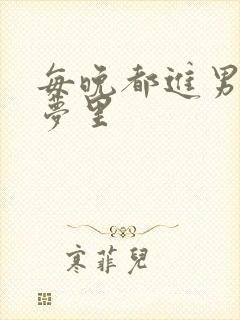 每晚都進男
夢里
寒菲兒